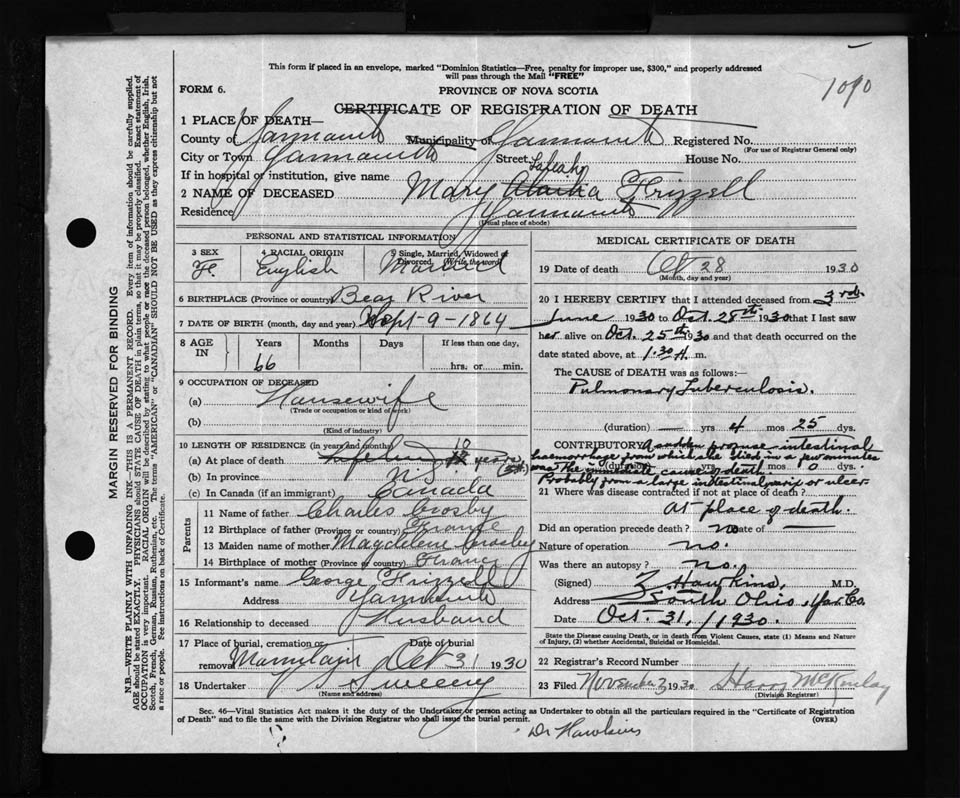 1090
This form if placed in an envelope, marked "Dominion Statistics—Free, penalty for improper use, $300," and properly addressed
will pass through the Mail "FREE"
FORM 6.
PROVINCE OF NOVA SCOTIA
CERTIFICATE OF REGISTRATION OF DEATH
1 PLACE OF DEATH—
County of Yarmouth Municipality of Yarmouth Registered No.
(For use of Registrar General only)
City or Town Yarmouth Street House No.
If in hospital or institution, give name
2 NAME OF DECEASED Mary Frizzell
Residence Yarmouth
(Usual place of abode)
PERSONAL AND STATISTICAL INFORMATION
3 SEX
Fe
4 RACIAL ORIGIN
English
5 Single, Married, Widowed or
Divorced. (Write the word)
Married
6 BIRTHPLACE (Province or country) Bear River
7 DATE OF BIRTH (month, day and year) Sept-9-1864
8 AGE IN
Years Months Days If less than one day,
66
hrs. or min.
9 OCCUPATION OF DECEASED
(a) Housewife
(Trade or occupation or kind of work)
(b)
(Kind of industry)
10 LENGTH OF RESIDENCE (in years and months)
(a) At place of death 10 years
(b) In province
(c) In Canada (if an immigrant) Canada
Parents
11 Name of father Charles Crosby
12 Birthplace of father (Province or country) France
13 Maiden name of mother Magdelene Crosby
14 Birthplace of mother (Province or country) France
15 Informant's name George Frizzell
Address Yarmouth
16 Relationship to deceased Husband
17 Place of burial, cremation or
removal
Date of burial
Oct 31 1930
18 Undertaker Sweeny
(Name and address)
MEDICAL CERTIFICATE OF DEATH
19 Date of death Oct 28 1930
(Month, day and year)
20 I HEREBY CERTIFY that I attended deceased from 3rd.
June 1930 to Oct. 28th 1930 that I last saw
her alive on Oct. 25th 1930 and that death occurred on the
date stated above, at 1.30 A. m.
The CAUSE of DEATH was as follows:
Pulmonary Tuberculosis.
(duration) — yrs 4 mos 25 dys.
CONTRIBUTORY profuse intestinal
haemorrhage from which she died in a few minutes
was the immediate cause of death
(duration) mos 0 dys.
Probably from a large intestinal ulcer
21 Where was disease contracted if not at place of death?
At place of death.
Did an operation precede death? no date of —
Nature of operation no.
Was there an autopsy? no.
(Signed) Z Hawkins, M.D.
Address South Ohio, Yar. Co.
Date Oct. 31, /1930.
State the Disease causing Death, or in death from Violent Causes, state (1) Means and Nature
of Injury, (2) whether Accidental, Suicidal or Homicidal.
22 Registrar's Record Number
23 Filed November 3 1930 Harry McKinlay
(Division Registrar)
Sec. 46—Vital Statistics Act makes it the duty of the Undertaker or person acting as Undertaker to obtain all the particulars required in the "Certificate of Registration
of Death" and to file the same with the Division Registrar who shall issue the burial permit.
(OVER)
Dr Hawkins
MARGIN RESERVED FOR BINDING
N.B.—WRITE PLAINLY WITH UNFADING INK—THIS IS A PERMANENT RECORD. Every item of information should be carefully supplied.
AGE should be stated EXACTLY. PHYSICIANS should STATE CAUSE OF DEATH in plain terms, so that it may be properly classified. Exact statement of
OCCUPATION is very important. RACIAL ORIGIN will be described by stating to what people or race the deceased person belonged, whether English, Irish,
Scotch, French, German, Russian, Ruthenian, etc. The terms "AMERICAN" or "CANADIAN" SHOULD NOT BE USED as they express citizenship but not
a race or people. See instructions on back of Certificate.